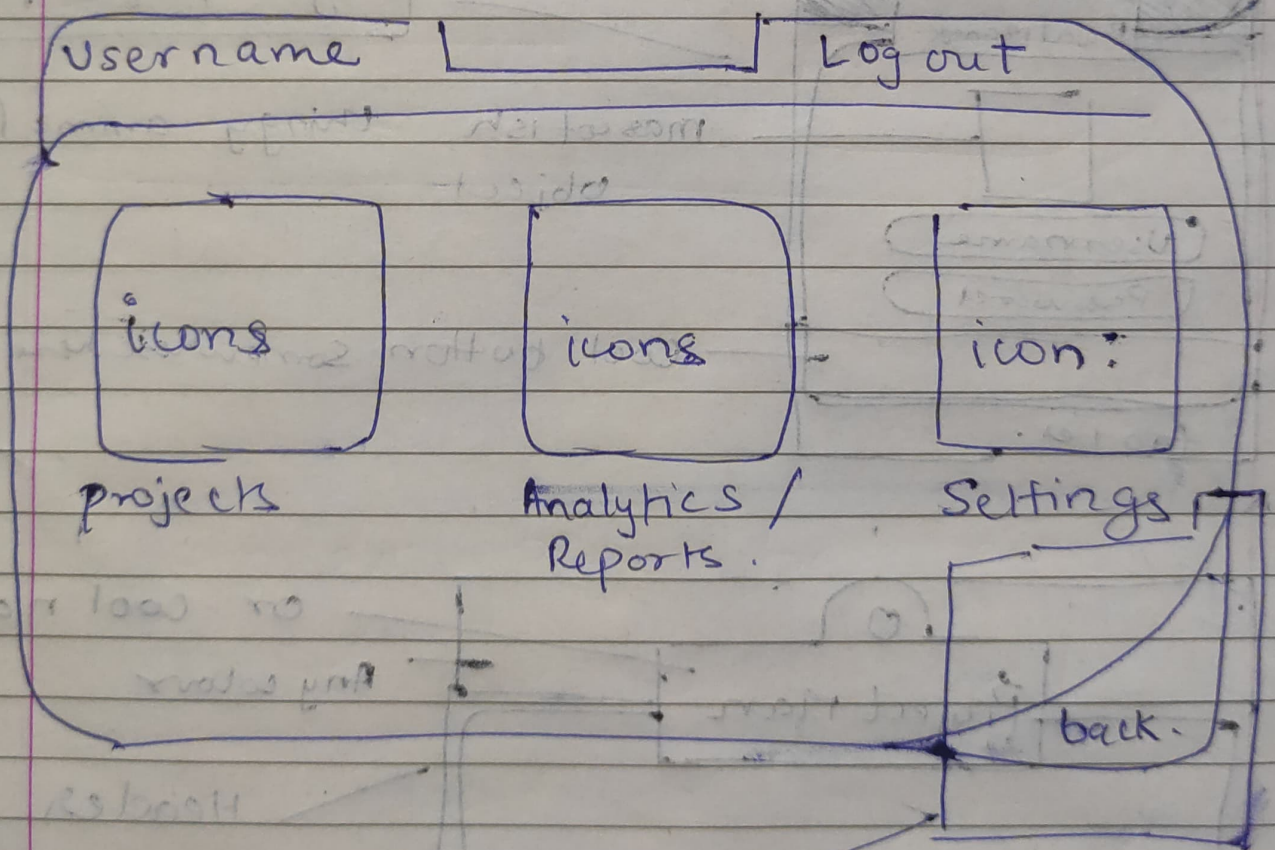 Username Log out
icons icons icon:
projects Analytics / Settings
Reports.
back.